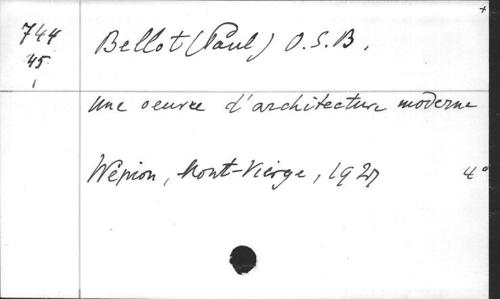 744
45
1
Bellot (Paul) O.S.B.
une oeuvre d'architecture moderne
Wépion, Mont-Vierge, 1927
4°